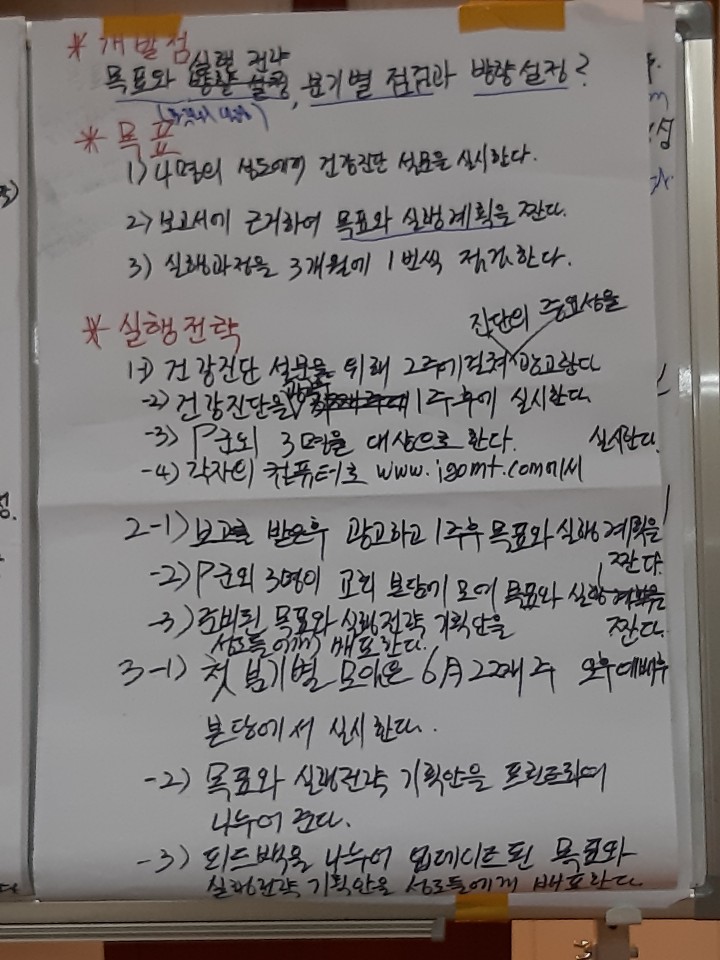 * 개발점
실행 전략
목표와 설정, 분기별 점검과 방향설정?
* 목표
1) 4명의 성도에게 건강진단 설문을 실시한다.
2) 보고서에 근거하여 목표와 실행계획을 짠다.
3) 실행과정을 3개월에 1번씩 점검한다.
* 실행전략
진단의 중요성을
1-1) 건강진단 설문을 위해 2주에걸쳐 광고한다
-2) 건강진단을 광고후 1주후에 실시한다.
-3) P군외 3명을 대상으로 한다.
-4) 각자의 컴퓨터로 www.igomt.com에서 실시한다.
2-1) 보고를 받은후 광고하고 1주후 목표와 실행계획을 짠다.
-2) P군외 3명이 교회 본당에 모여 목표와 실행계획을 짠다.
-3) 준비된 목표와 실행전략 기획안을
성도들에게 배포한다.
3-1) 첫 분기별 모임은 6月 22째주 오후예배후
본당에서 실시한다.
-2) 목표와 실행전략 기획안을 프린트하여
나누어 준다.
-3) 피드백을 나누어 업데이트된 목표와
실행전략 기획안을 성도들에게 배포한다